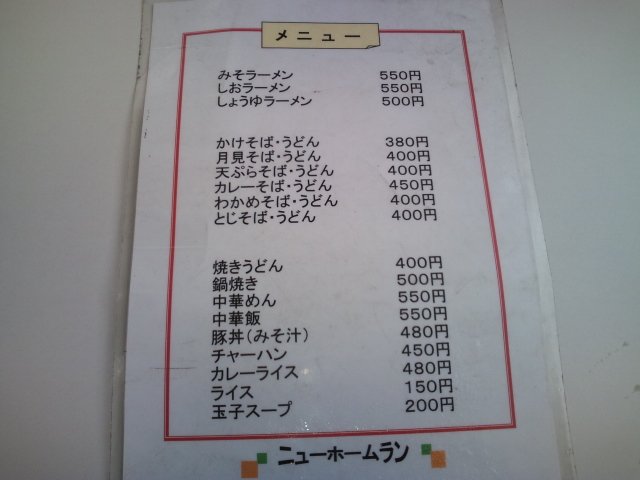 メニュー
みそラーメン 550円
しおラーメン 550円
しょうゆラーメン 500円
かけそば・うどん 380円
月見そば・うどん 400円
天ぷらそば・うどん 400円
カレーそば・うどん 450円
わかめそば・うどん 400円
とじそば・うどん 400円
焼きうどん 400円
鍋焼き 500円
中華めん 550円
中華飯 550円
豚丼(みそ汁) 480円
チャーハン 450円
カレーライス 480円
ライス 150円
玉子スープ 200円
ニューホームラン